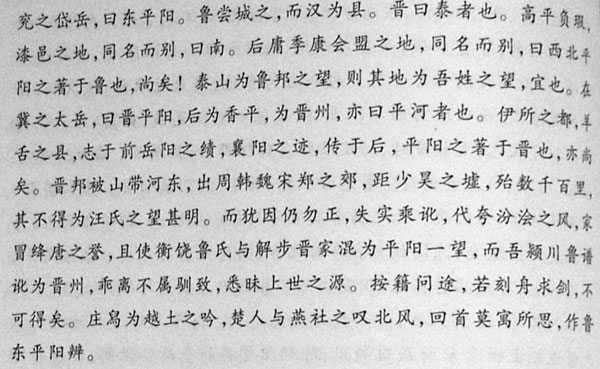 兖之岱岳，曰东平阳。鲁尝城之，而汉为县。晋曰泰者也。高平负瑕，
漆邑之地，同名而别，曰南。后庸季康会盟之地，同名而别，曰西北平
阳之著于鲁也，尚矣！泰山为鲁邦之望，则其地为吾姓之望，宜也。在
冀之太岳，曰晋平阳，后为香平，为晋州，亦曰平河者也。伊所之都，羊
舌之县，志于前岳阳之绩，襄阳之迹，传于后，平阳之著于晋也，亦尚
矣。晋邦被山带河东，出周韩魏宋郑之郊，距少昊之墟，殆数千百里，
其不得为汪氏之望甚明。而犹因仍勿正，失实乘讹，代夸汾浍之风，家
冒绛唐之誉，且使衡饶鲁氏与解步晋家混为平阳一望，而吾颍川鲁谱
讹为晋州，乖离不属驯致，悉昧上世之源。按籍问途，若刻舟求剑，不
可得矣。庄舄为越土之吟，楚人与燕社之叹北风，回首莫寓所思，作鲁
东平阳辨。